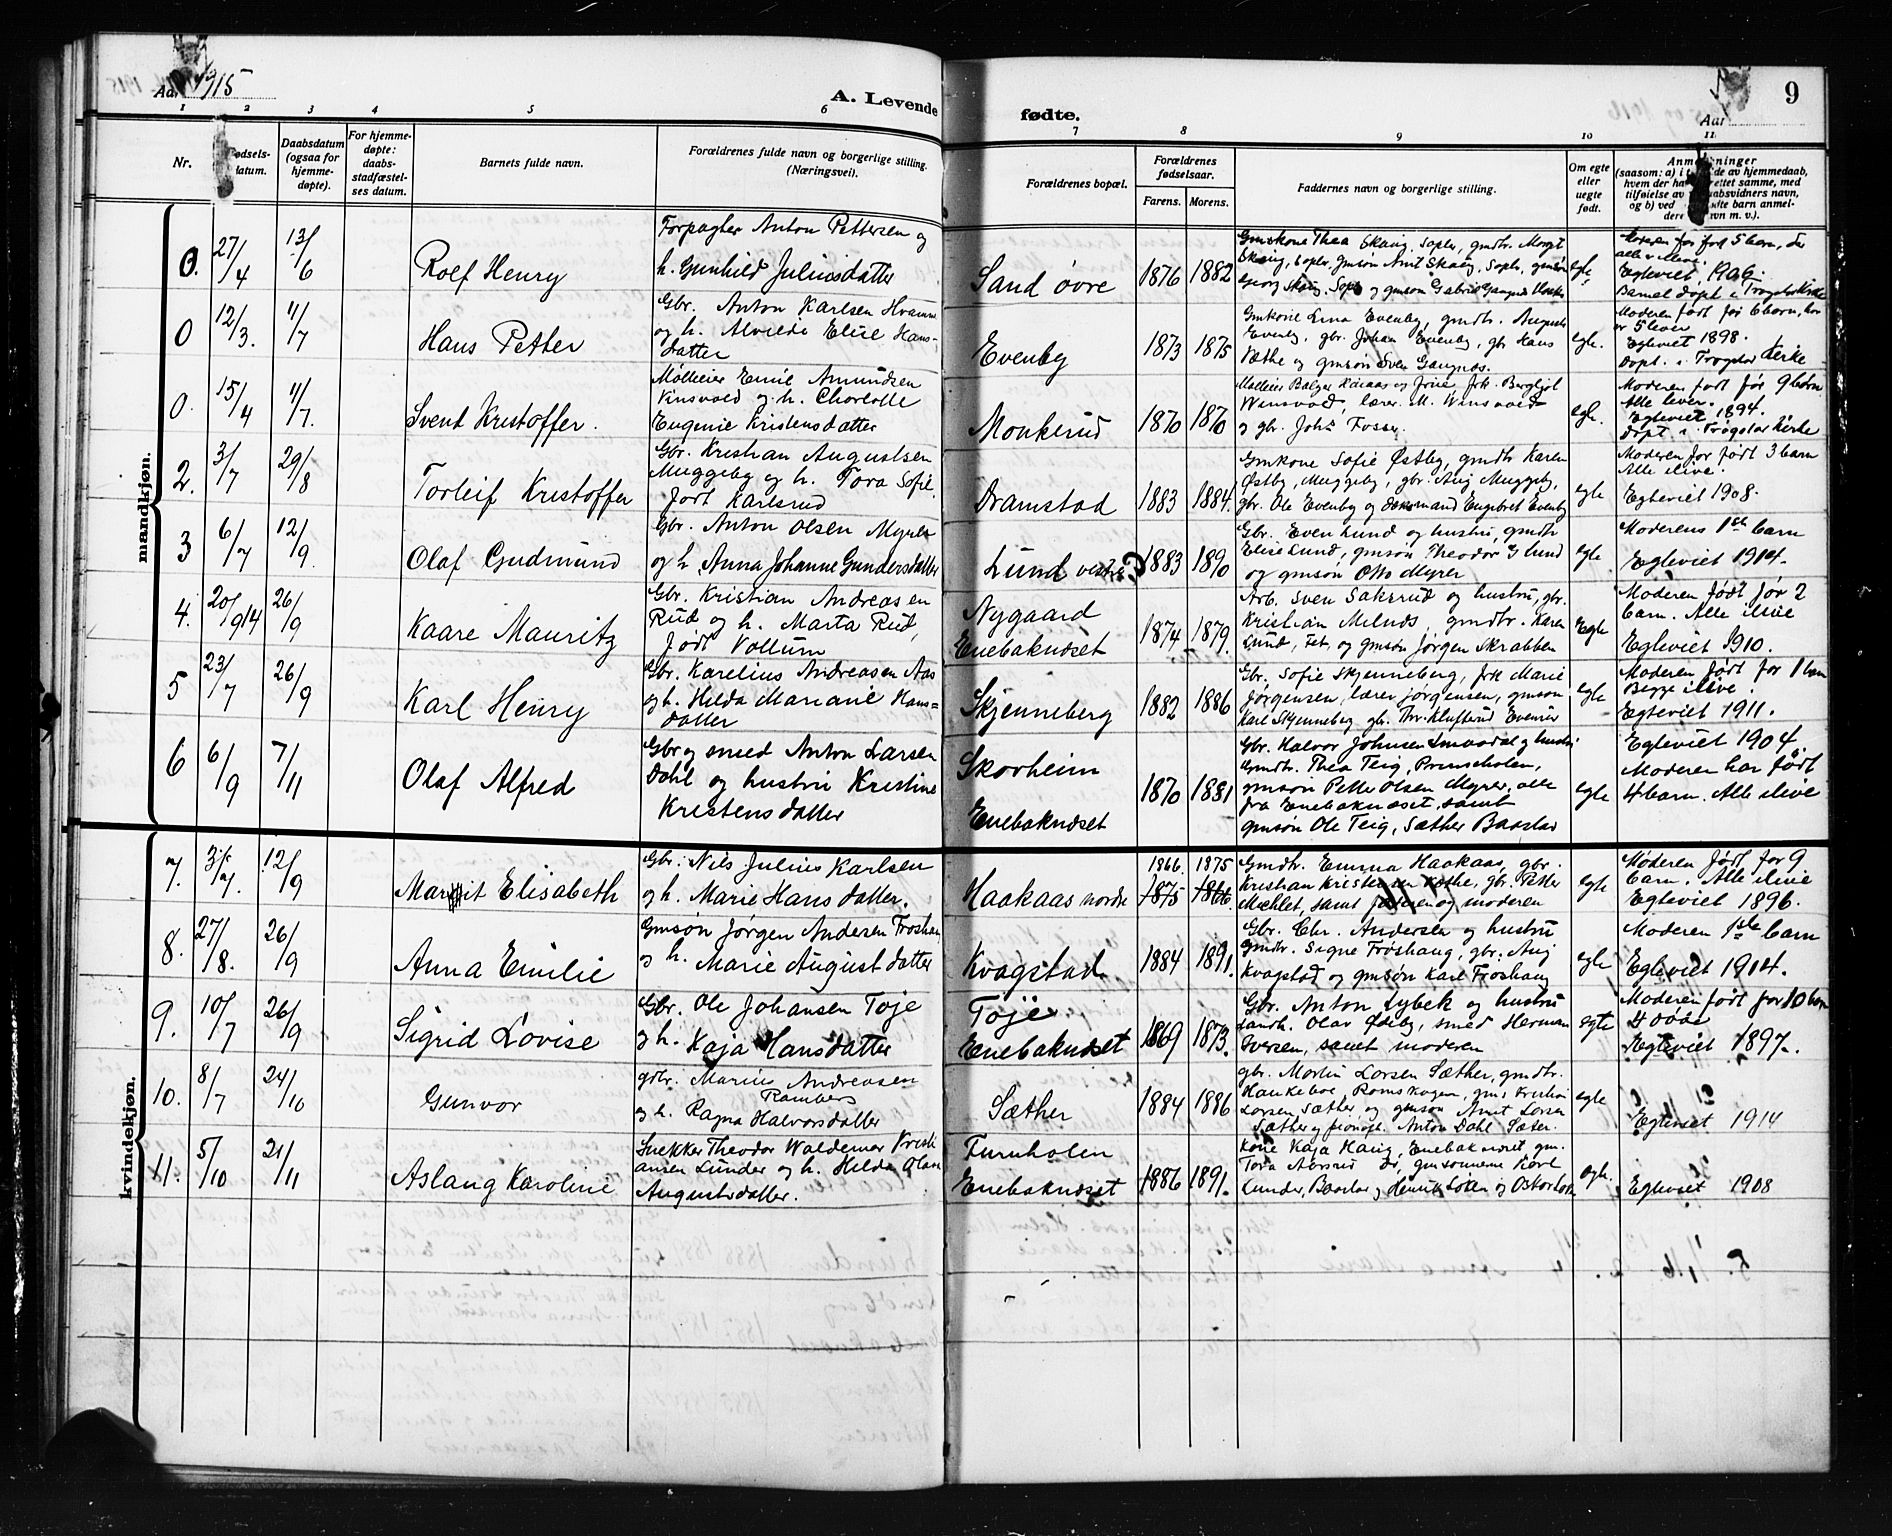 Aar 1915
A. Levende
fødte.
9
Aar
1 2 3 4 5 6 7 8 9 10 11
Nr.
Fødsels-
datum.
Daabsdatum
(ogsaa for
hjemme-
døpte).
For hjemme-
døpte:
daabs-
stadfæstel-
ses datum.
Barnets fulde navn.
Forældrenes fulde navn og borgerlige stilling.
(Næringsvei).
Forældrenes bopæl.
Forældrenes
fødselsaar.
Farens. Morens.
Faddernes navn og borgerlige stilling.
Om egte
eller
uegte
født.
Anmerkninger
(saasom: a) i tilfælde av hjemmedaab,
hvem der har forrettet samme, med
tilføielse av daabsvidners navn,
og b) ved uegte barn anmel-
derens navn m. v.).
mandkjøn.
0. 27/4 13/6
Rolf Henry
Forpagter Anton Pettersen og
h. Gunhild Juliusdatter
Sand øvre 1876 1882
Gmskone Thea Skaug, Sopler, gmdtr. Margt
Skaug, Sopler, Gmsøn Arnt Skaug, Sopler, gmsøn
Georg Skaug, Sopler og gmsøn Gabriel
egte
Moderen før født 5 barn, der
alle i live.
Egteviet 1906.
Barnet døpt i Trøgstad Kirke
0 12/3. 11/7
Hans Petter
Gbr. Anton Karlsen Hvamm
og h. Alvilde Elise Hans-
datter
Evenby 1873 1875
Gmkone Lina Evenby, gmdtr. Augusta
Evenby, gbr. Johan Evenby, gbr Hans
Kæthe og gmsøn Sven Gangnæs.
egte.
Moderen født før 6 barn, hvor
av 5 lever
Egteviet 1898.
Døpt. i Trøgstad Kirke
0. 15/4 11/7.
Svent Kristoffer.
Mølleier Emil Amundsen
Vinsvold og h. Charlotte
Eugenie Kristensdatter
Monkerud 1870 1870
Mølleier Balzer Haaas og frue, frk. Bergljot
Winsvold, lærer M. Winsvold
og gbr. Johs Fosser.
egte.
Moderen født før 9 børn
Alle lever.
Egteviet 1894.
Døpt i Trøgstad Kirke
2. 3/7 29/8
Torleif Kristoffer
Gbr. Kristian Augustsen
Muggeby og h. Tora Sofie,
født Karlsrud
Dramstad 1883 1884.
Gmkone Sofie Østby, gmdtr Karen
Østby, Muggeby, gbr. Aug Muggeby,
gbr. Ole Evenby og Engebret Evenby
egte
Moderen før født 3 barn
Alle ilive.
Egteviet 1908.
3 6/7 12/9
Olaf Gudmund
Gbr. Anton Olsen Myrer
og h. Anna Johanne Gundersdatter
Lund vestre 1883 1890
Gbr. Even Lund og hustru, gmdtr
Elise Lund, gmsøn Theodor Lund
og gmsøn Otto Myrer
egte
Moderens 1ste barn
Egteviet 1914.
4. 20/9 14 26/9
Kaare Mauritz
Gbr. Kristian Andreasen
Rud og h. Marta Rud,
født Vollum
Nygaard
Enebaknæset 1874 1879.
Arb. Sven Saksrud og hustru, gbr.
Kristian Melnæs, gmdtr. Karen
Lund, Fet. og gmsøn Jørgen Skrabben
Egte
Moderen født før 2
barn. Alle ilive
Egteviet 1910.
5 23/7 26/9
Karl Henry
Gbr. Karelius Andreasen Aas
og h. Hilda Mariane Hans=
datter
Skjenneberg 1882 1886
Gbr. Sofie Skjenneberg, frk Marie
Jørgensen, lærer Jørgensen, gmsøn
Karl Skjenneberg gbr. Thv. Klufterud Evenrud
egte
Moderen født før 1 barn
Begge ilive.
Egteviet 1911.
6 6/9 7/11
Olaf Alfred
Gbr og smed Anton Larsen
Dahl og hustru Kristine
Kristensdatter
Skorheim
Enebaknæset 1870 1881
Gbr. Halvor Johnsen Smaadal og hustru
Gmdtr. Thea Teig, Prenseholen,
gmsøn Petter Olsen Myrer, alle
fra Enebaknæset, samt
gmsøn Ole Teig, Sæther Baastad
egte
Egteviet 1904
Moderen har født
4 barn. Alle ilive
kvindekjøn.
7. 3/7. 12/9
Margit Elisabeth
Gbr. Nils Julius Karlsen
og h. Marie Hansdatter.
Haakaas nordre 1866. 1875
1875 1866.
Gmdtr. Emma Haakaas, gbr.
Kristian Kristensen Kæthe, gbr. Petter
Michlet, samt faderen og moderen
egte
Moderen født før 9
barn. Alle ilive
Egteviet 1896.
8. 27/8. 26/9
Anna Emilie
Gmsøn Jørgen Andersen Froshaug
og h. Marie Augustdatter
Kvagstad 1884 1891.
Gbr. Chr. Andersen og hustru
Gmdtr. Signe Frøshaug, gbr. Aug
Kvagstad og gmsøn Karl Froshaug
egte
Moderen 1ste barn
Egteviet 1914.
9. 10/7 26/9
Sigrid Lovise
Gbr. Ole Johansen Tøje
og h. Kaja Hansdatter
Tøje
Enebaknæset 1869 1873.
Gbr. Anton Lybek og hustru
Landh. Olav Ødeby, smed Herman
Iversen, samt moderen
egte
Moderen født før 10 barn
4 døde
Egteviet 1897.
10. 8/7 24/10
Gunvor
gbr. Marius Andreasen
Ramberg
og h. Ragna Halvorsdatter
Sæther 1884 1886
gbr. Martin Larsen Sæther, gmdtr.
Haukeboe, Romskogen, gm, Kristian
Larsen Sæther, og gmsøn Arnt Larsen
Sæther og Anton Dahl Sæter.
egte
Egteviet 1914
11. 5/10 21/11
Aslaug Karoline
Snekker Theodor Waldemar Kristi
ansen Lunder og h. Hilda Olava
Augustsdatter.
Furuholen
Enebaknæset 1886 1891.
Kone Kaja Haug, Enebaknæset gm.
Tora Aersrud Do, gmsønnerne Karl
Lunder, Baastad og Henrik Løken og Oskar Løken
egte.
Egteviet 1908